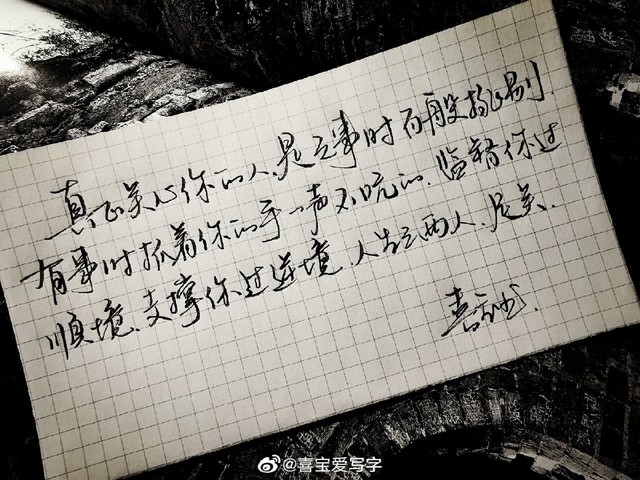 真正关心你的人,是无事时百般挑剔
有事时抓着你的手一声不吭的.监督你过
顺境,支撑你过逆境,人生三两人,足矣.
喜宝书.
@喜宝爱写字